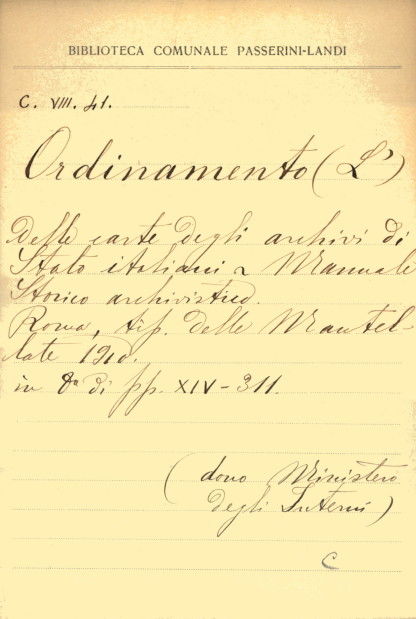 BIBLIOTECA COMUNALE PASSERINI-LANDI
C. VIII. 41.
Ordinamento (L')
Delle carte degli archivi di
Stato italiani ~ Manuale
Storico archivistico.
Roma, tip. delle Mantel-
late 1910.
in 8º di pp. XIV-311.
(dono Ministero
degli Interni)
C